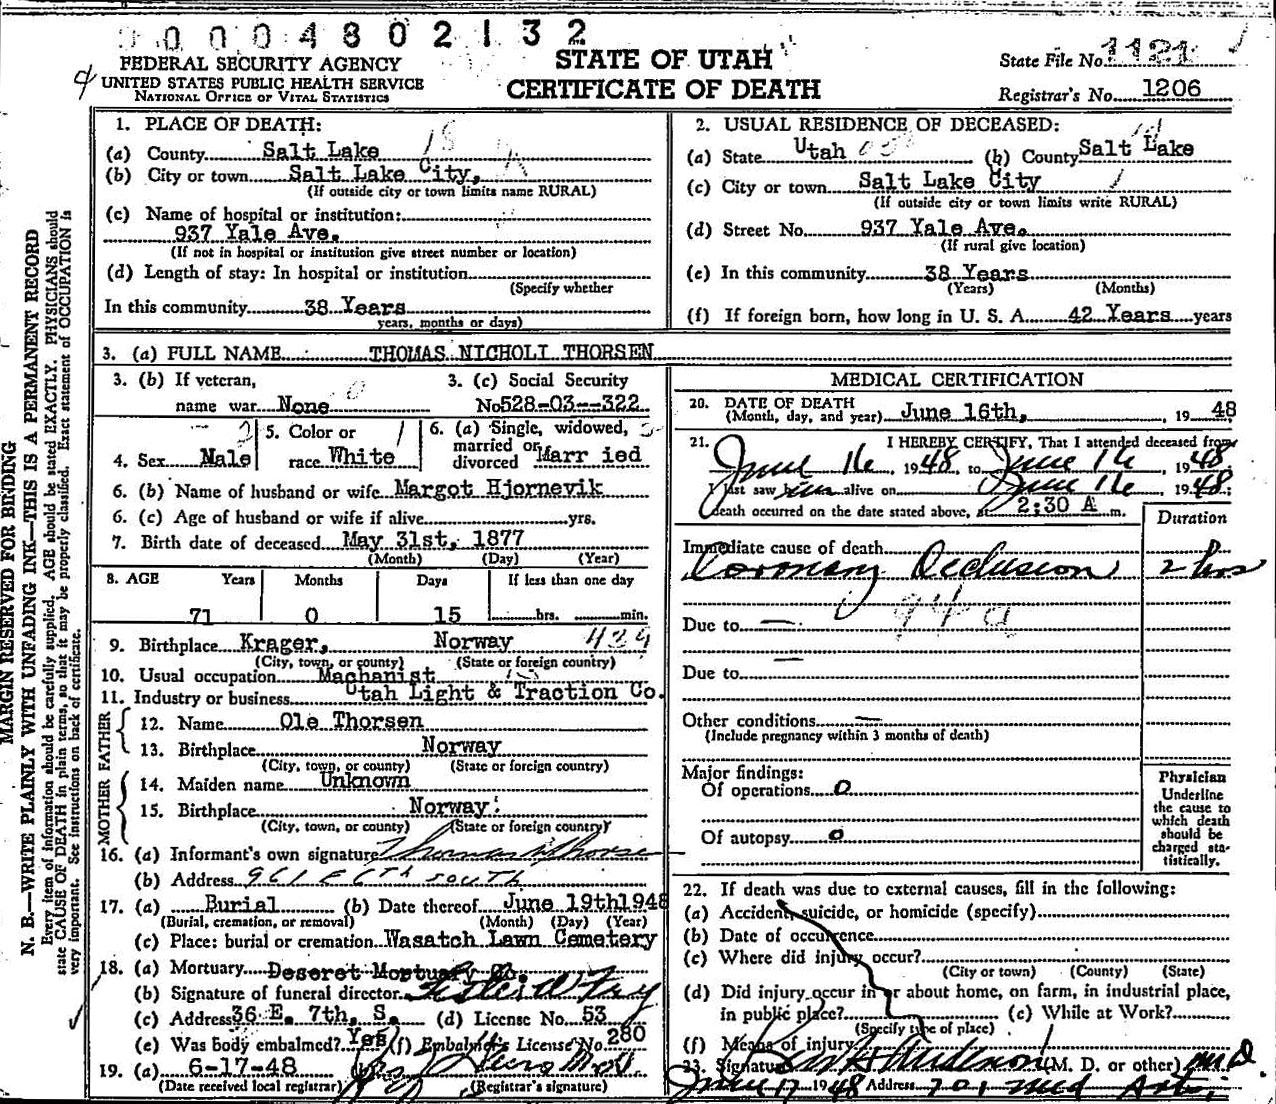 0 0 0 0 4 8 0 2 1 3 2
FEDERAL SECURITY AGENCY
UNITED STATES PUBLIC HEALTH SERVICE
NATIONAL OFFICE OF VITAL STATISTICS
STATE OF UTAH
CERTIFICATE OF DEATH
State File No. 1121
Registrar's No. 1206
MARGIN RESERVED FOR BINDING
N. B.—WRITE PLAINLY WITH UNFADING INK—THIS IS A PERMANENT RECORD
Every item of information should be carefully supplied. AGE should be stated EXACTLY. PHYSICIANS should
state CAUSE OF DEATH in plain terms, so that it may be properly classified. Exact statement of OCCUPATION is
very important. See instructions on back of certificate.
1. PLACE OF DEATH:
(a) County Salt Lake
(b) City or town Salt Lake City,
(If outside city or town limits name RURAL)
(c) Name of hospital or institution:
937 Yale Ave.
(If not in hospital or institution give street number or location)
(d) Length of stay: In hospital or institution
(Specify whether
In this community 38 Years
years, months or days)
2. USUAL RESIDENCE OF DECEASED:
(a) State Utah (b) County Salt Lake
(c) City or town Salt Lake City
(If outside city or town limits write RURAL)
(d) Street No. 937 Yale Ave.
(If rural give location)
(e) In this community 38 Years
(Years) (Months)
(f) If foreign born, how long in U. S. A. 42 Years years
3. (a) FULL NAME THOMAS NICHOLI THORSEN
3. (b) If veteran,
name war None
3. (c) Social Security
No 528-03--322
4. Sex Male
5. Color or
race White
6. (a) Single, widowed,
married or
divorced Marr ied
6. (b) Name of husband or wife Margot Hjornevik
6. (c) Age of husband or wife if alive yrs.
7. Birth date of deceased May 31st, 1877
(Month) (Day) (Year)
8. AGE Years Months Days If less than one day
71 0 15 hrs. min.
9. Birthplace Krager, Norway 429
(City, town, or county) (State or foreign country)
10. Usual occupation Machanist
11. Industry or business Utah Light & Traction Co.
FATHER
12. Name Ole Thorsen
13. Birthplace Norway
(City, town, or county) (State or foreign country)
MOTHER
14. Maiden name Unknown
15. Birthplace Norway.
(City, town, or county) (State or foreign country)
16. (a) Informant's own signature Thomas Thorsen
(b) Address 961 E 6TH SOUTH
17. (a) Burial (b) Date thereof June 19th 1948
(Burial, cremation, or removal) (Month) (Day) (Year)
(c) Place: burial or cremation Wasatch Lawn Cemetery
18. (a) Mortuary Deseret Mortuary Co.
(b) Signature of funeral director
(c) Address 36 E. 7th, S. (d) License No. 53
(e) Was body embalmed? Yes (f) Embalmer's License No. 280
19. (a) 6-17-48
(Date received local registrar) (Registrar's signature)
MEDICAL CERTIFICATION
20. DATE OF DEATH
(Month, day, and year) June 16th, 19 48
21. I HEREBY CERTIFY, That I attended deceased from
June 16, 1948, to June 16, 1948
I last saw him alive on June 16, 1948;
death occurred on the date stated above, at 2:30 A m.
Duration
Immediate cause of death
Coronary Occlusion 2 hrs
94a
Due to —
Due to —
Other conditions —
(Include pregnancy within 3 months of death)
Major findings:
Of operations 0
Of autopsy 0
Physician
Underline
the cause to
which death
should be
charged sta-
tistically.
22. If death was due to external causes, fill in the following:
(a) Accident, suicide, or homicide (specify)
(b) Date of occurrence
(c) Where did injury occur?
(City or town) (County) (State)
(d) Did injury occur in or about home, on farm, in industrial place,
in public place? (e) While at Work?
(Specify type of place)
(f) Means of injury
23. Signature Anderson (M. D. or other) M D
June 17 1948 Address 701 Med Arts